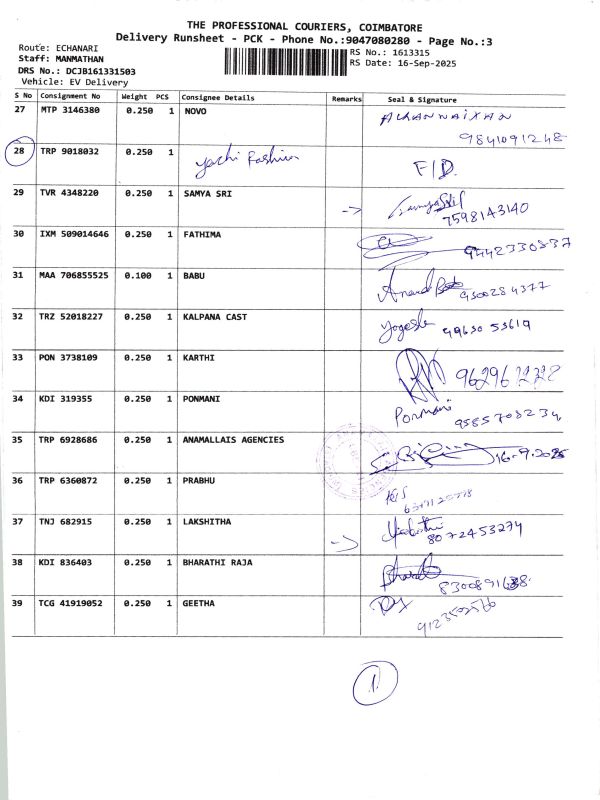 THE PROFESSIONAL COURIERS, COIMBATORE
Delivery Runsheet - PCK - Phone No.:9047080280 - Page No.:3
Route: ECHANARI
Staff: MANMATHAN
DRS No.: DCJB161331503
Vehicle: EV Delivery
RS No.: 1613315
RS Date: 16-Sep-2025
S No Consignment No Weight PCS Consignee Details Remarks Seal & Signature
27 MTP 3146380 0.250 1 NOVO
9841091248
28 TRP 9018032 0.250 1 Yachi Fashion F/D.
29 TVR 4348220 0.250 1 SAMYA SRI
7598143140
30 IXM 509014646 0.250 1 FATHIMA
9442330837
31 MAA 706855525 0.100 1 BABU Anand
9500284377
32 TRZ 52018227 0.250 1 KALPANA CAST Yogesh 99630 53619
33 PON 3738109 0.250 1 KARTHI
34 KDI 319355 0.250 1 PONMANI Ponmani
9585708234
35 TRP 6928686 0.250 1 ANAMALLAIS AGENCIES 16-9-2025
36 TRP 6360872 0.250 1 PRABHU
37 TNJ 682915 0.250 1 LAKSHITHA
8072453274
38 KDI 836403 0.250 1 BHARATHI RAJA Bharath
39 TCG 41919052 0.250 1 GEETHA
1